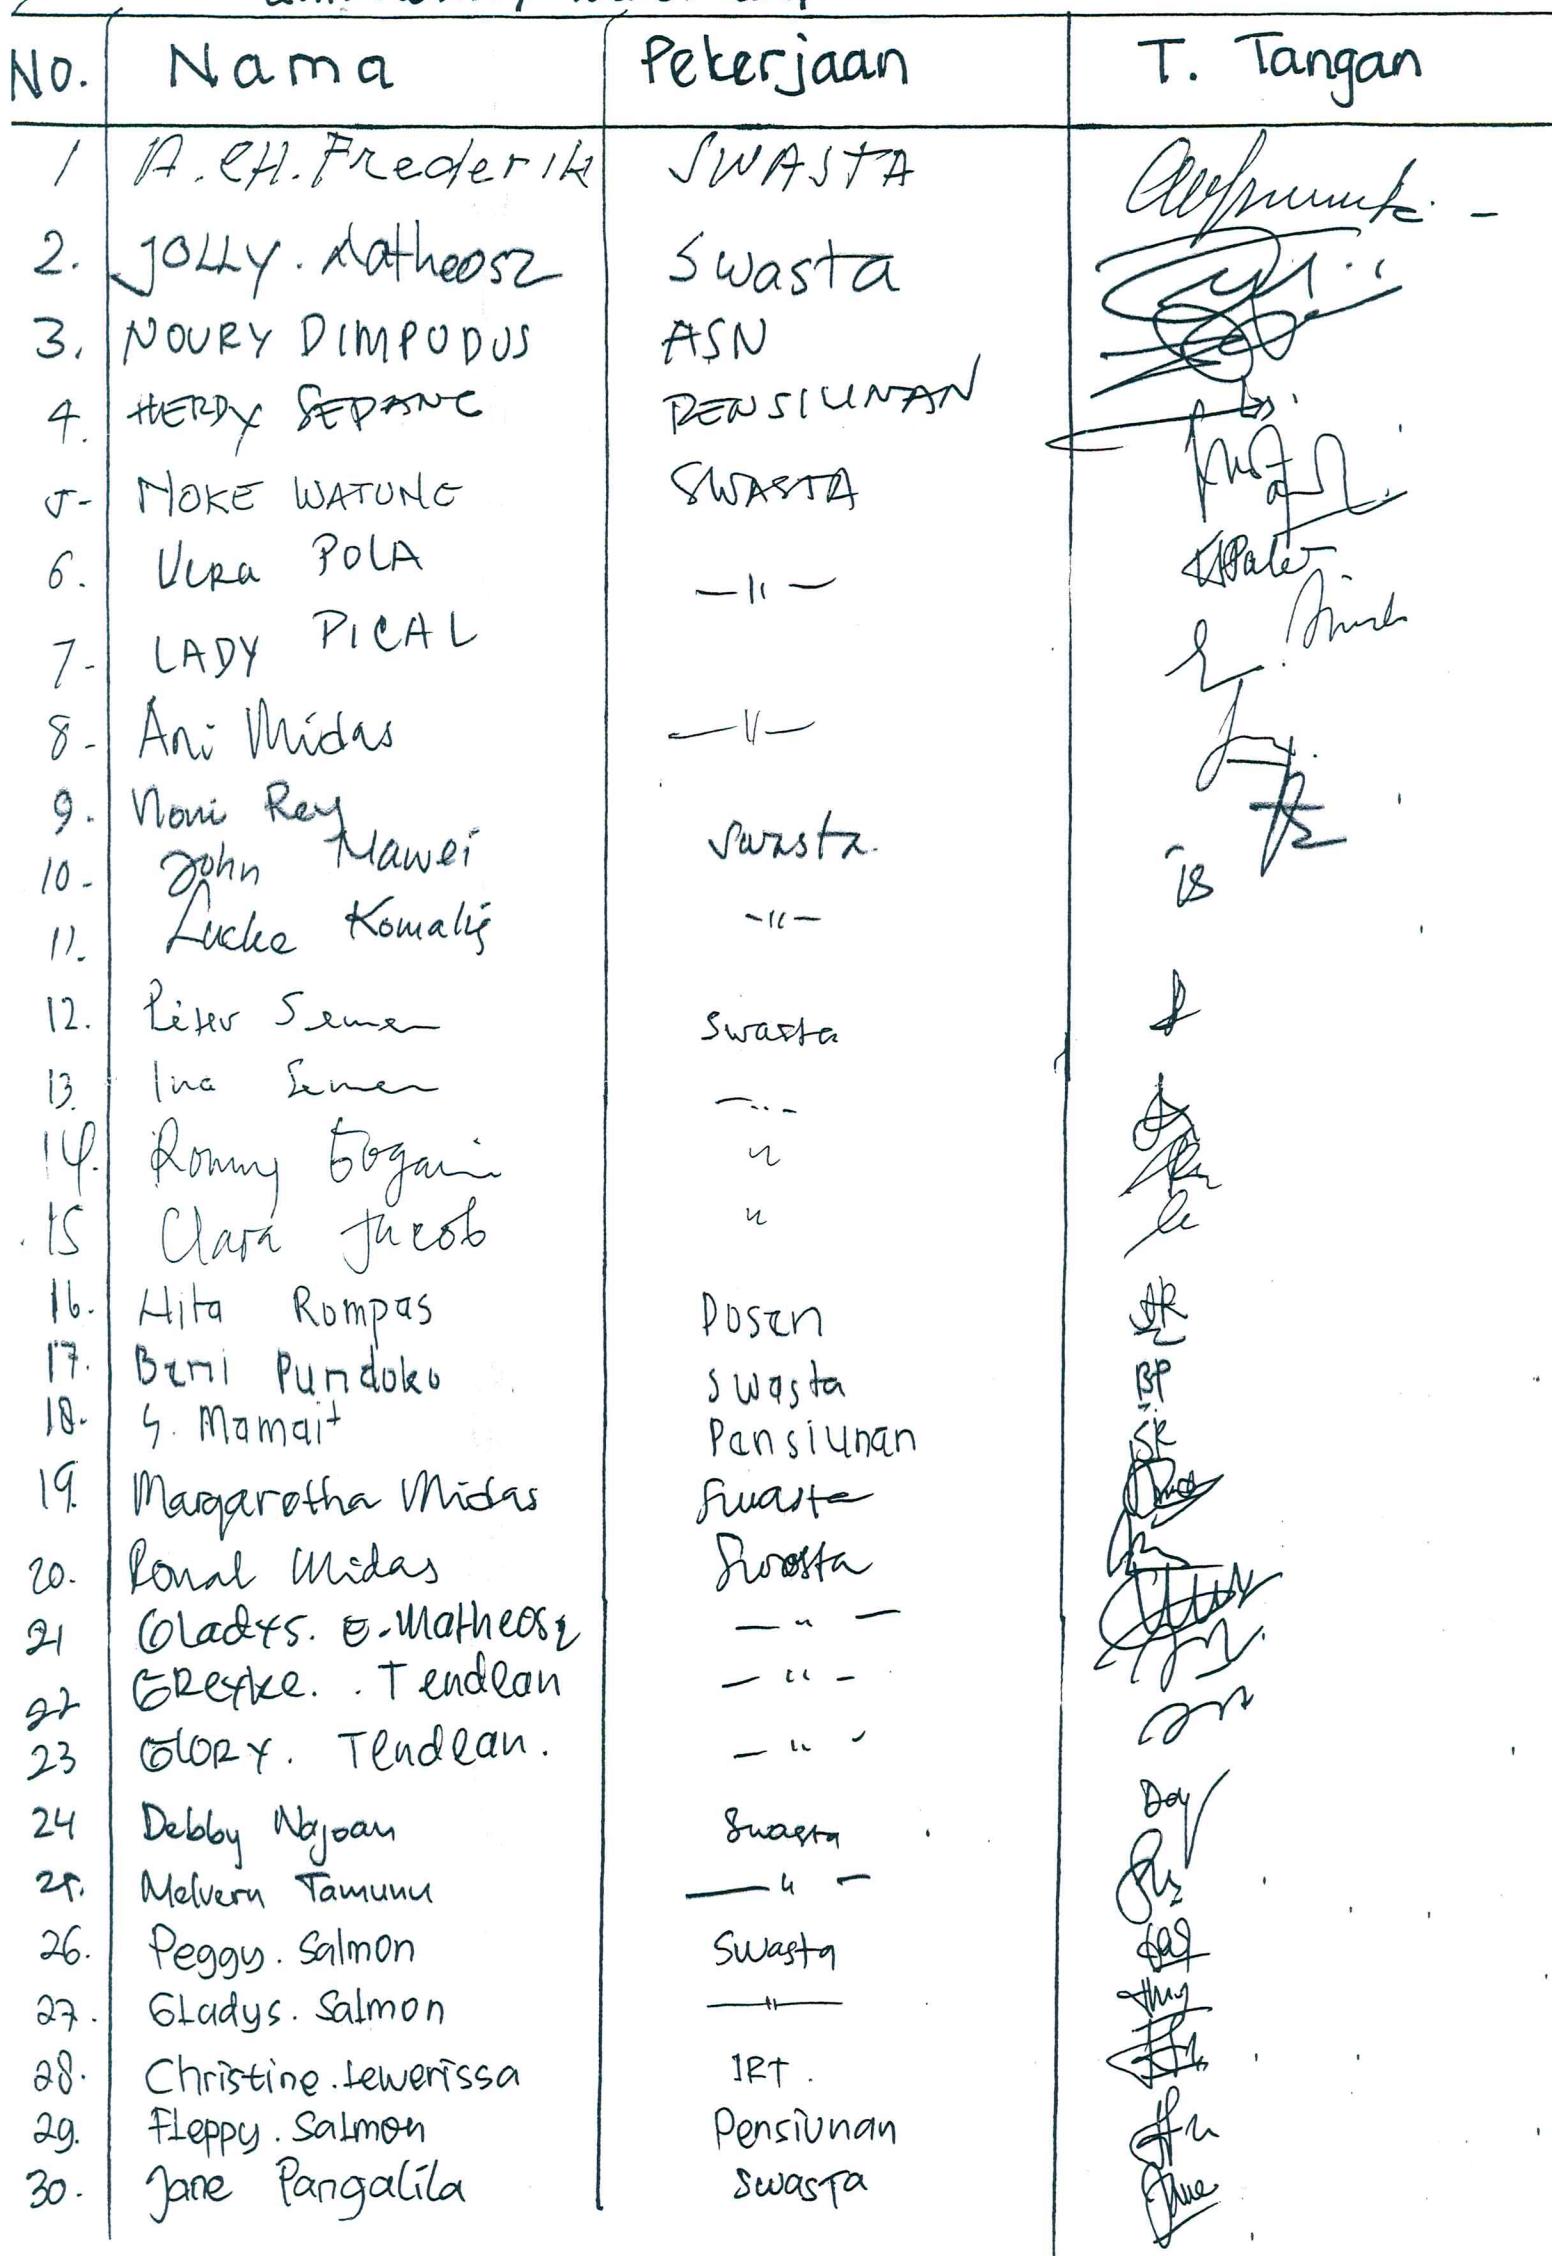 No. Nama Pekerjaan T. Tangan
1 A. CH. Frederik SWASTA
2. JOLLY. Matheosz Swasta
3. NOURY DIMPUDUS ASN
4. HERDY SEPANG PENSIUNAN
5- NOKE WATUNG SWASTA
6. Vera POLA —"—
7- LADY PICAL
8- Ani Midas —"—
9. Noni Rey
10- John Mawei Swasta.
11. Lucke Komalig —"—
12. Piter Semen Swasta
13. Ina Semen —"—
14. Ronny Gogani "
15 Clara Jacob "
16. Hita Rompas Dosen
17. Beni Pundoko Swasta BP
18. S. Mamait Pensiunan
19. Margaretha Midas Swasta
20. Ronal Midas Swasta
21 Gladys. E. Matheosz — " —
22 GReyke. . Tendean — " —
23 GLORY. Tendean. — " —
24 Debby Najoan Swasta
25. Melvern Tamunu — " —
26. Peggy. Salmon Swasta
27. GLadys. Salmon —"—
28. Christine. Lewerissa IRT.
29. FLeppy. Salmon Pensiunan
30. Jane Pangalila Swasta